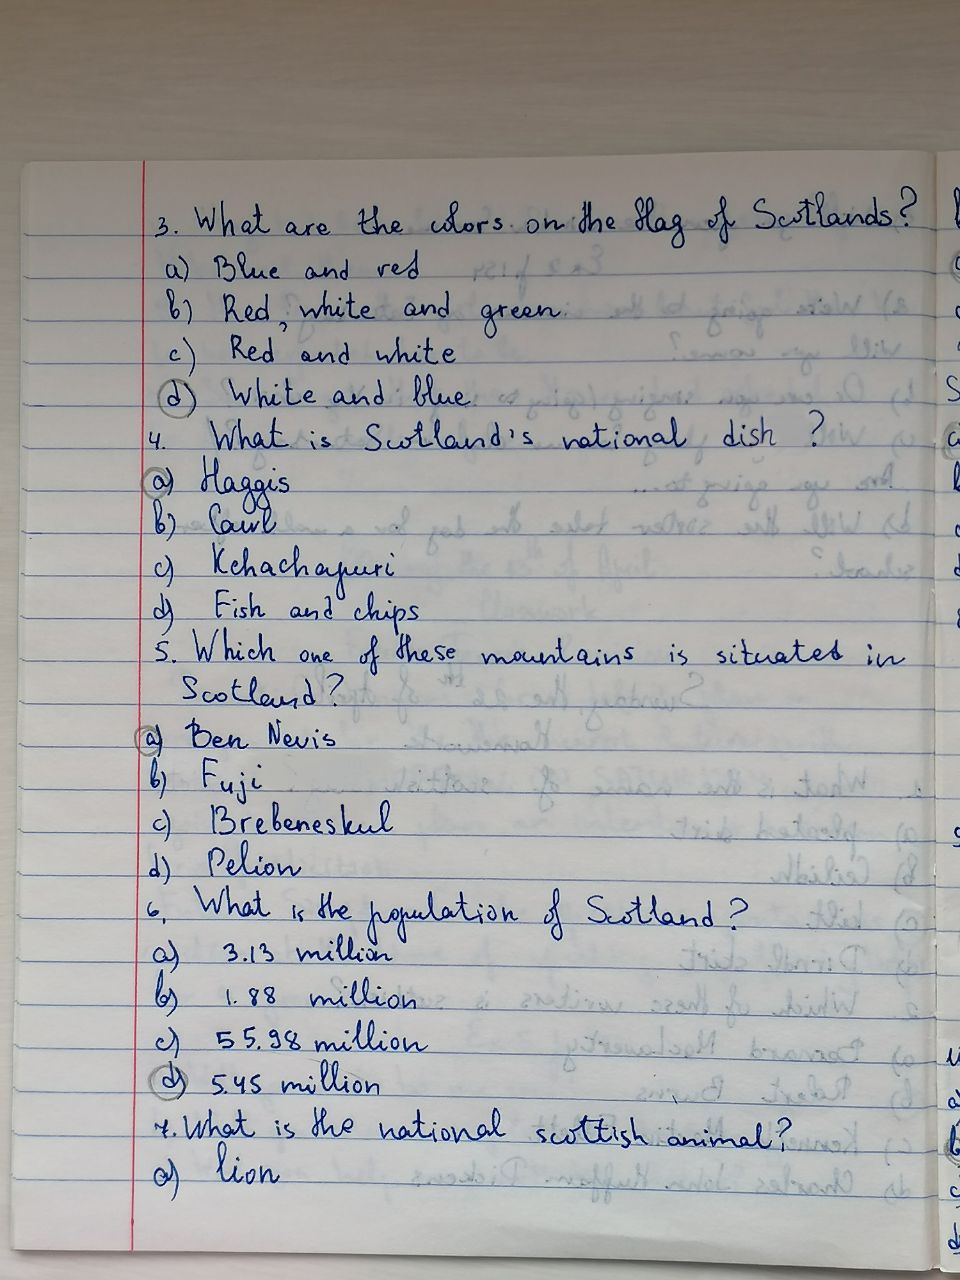 3. What are the colors on the flag of Scotlands?
a) Blue and red
b) Red, white and green
c) Red and white
d) White and blue
4. What is Scotland's national dish ?
a) Haggis
b) Cawl
c) Kchachapuri
d) Fish and chips
5. Which one of these mountains is situated in
Scotland?
a) Ben Nevis
b) Fuji
c) Brebeneskul
d) Pelion
6. What is the population of Scotland?
a) 3.13 million
b) 1.88 million
c) 55.98 million
d) 5.45 million
7. What is the national scottish animal?
a) lion